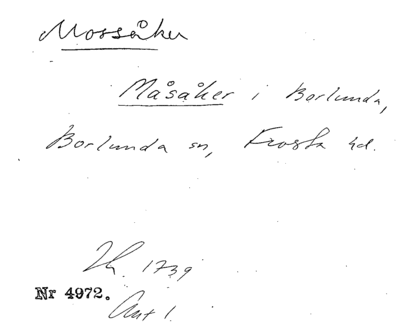 Mossåker
Måsåker i Borlunda,
Borlunda sn, Frosta hd.
Jb. 1739
Nr 4972.
Ant 1